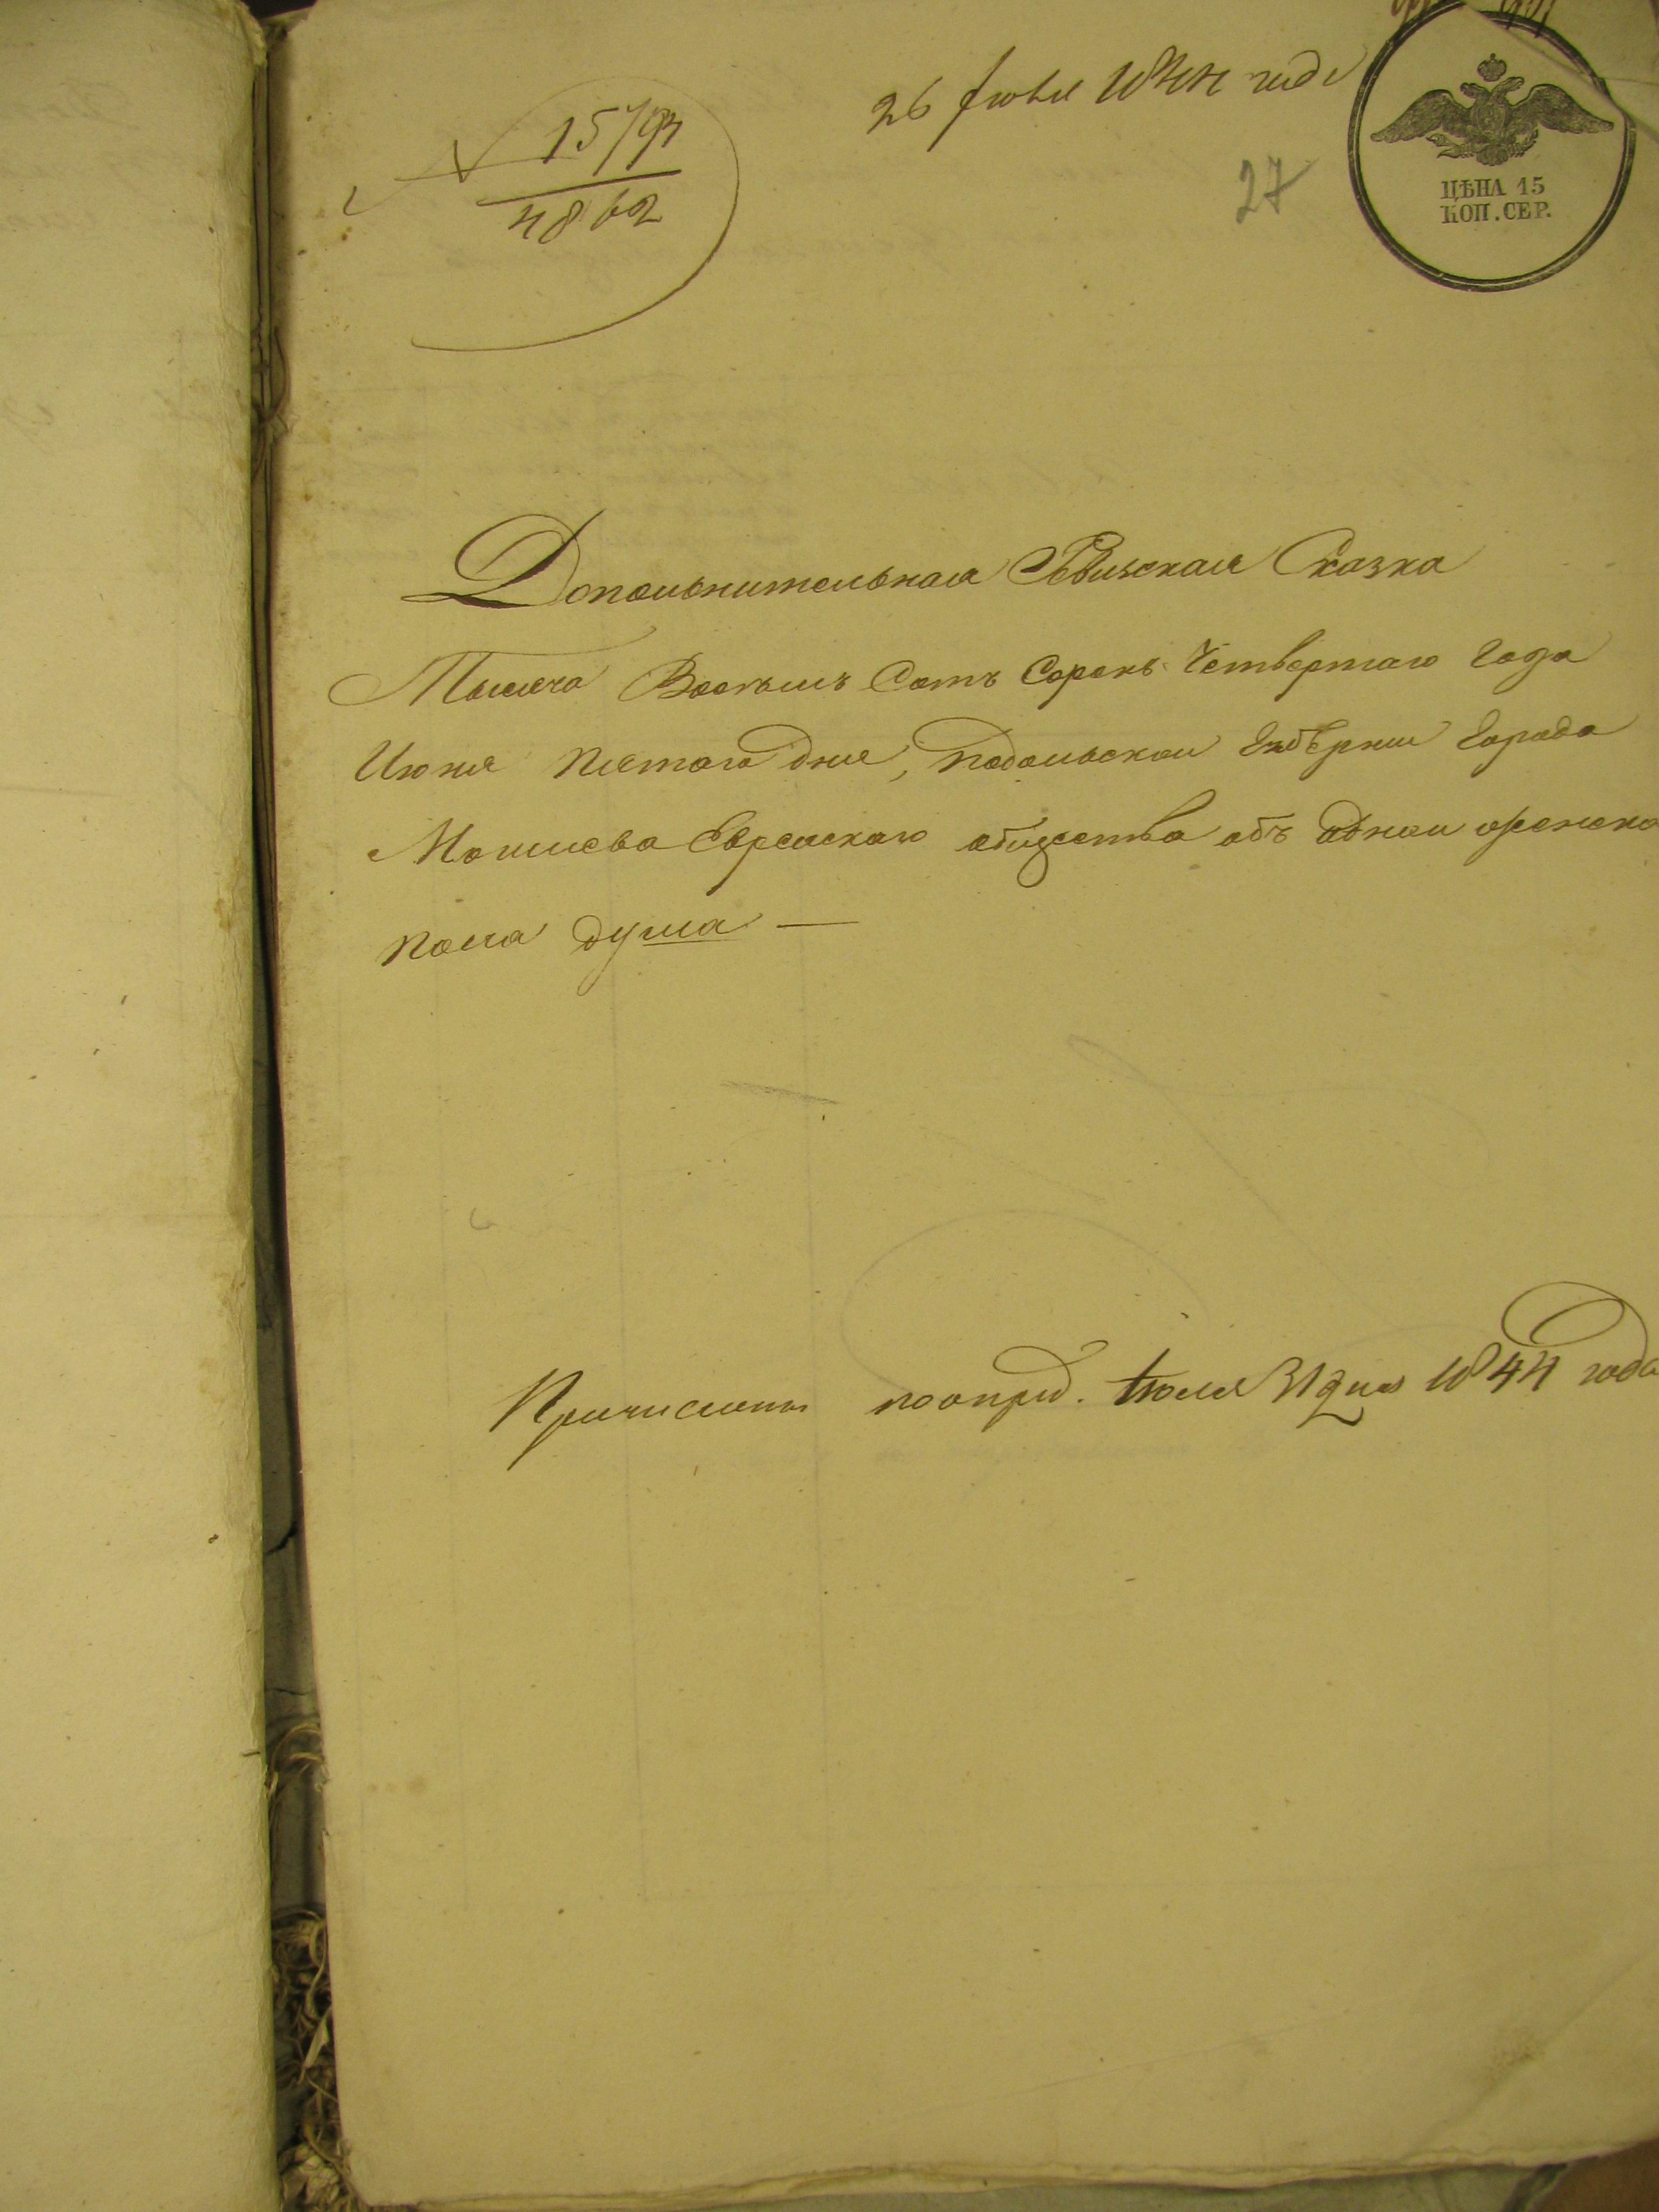 26 Июля 1844 года
№ 15793
4862
27
ЦѢНА 15
КОП. СЕР.
Дополнительная Ревизская Сказка
Тысяча Восемь Сотъ Сорокъ Четвертаго Года
Июня пятаго дня, Подольской Губерніи Города
Могилева Еврейскаго общества объ одной женска
пола душа —
Причислены по опред. Июля 31 дня 1844 года